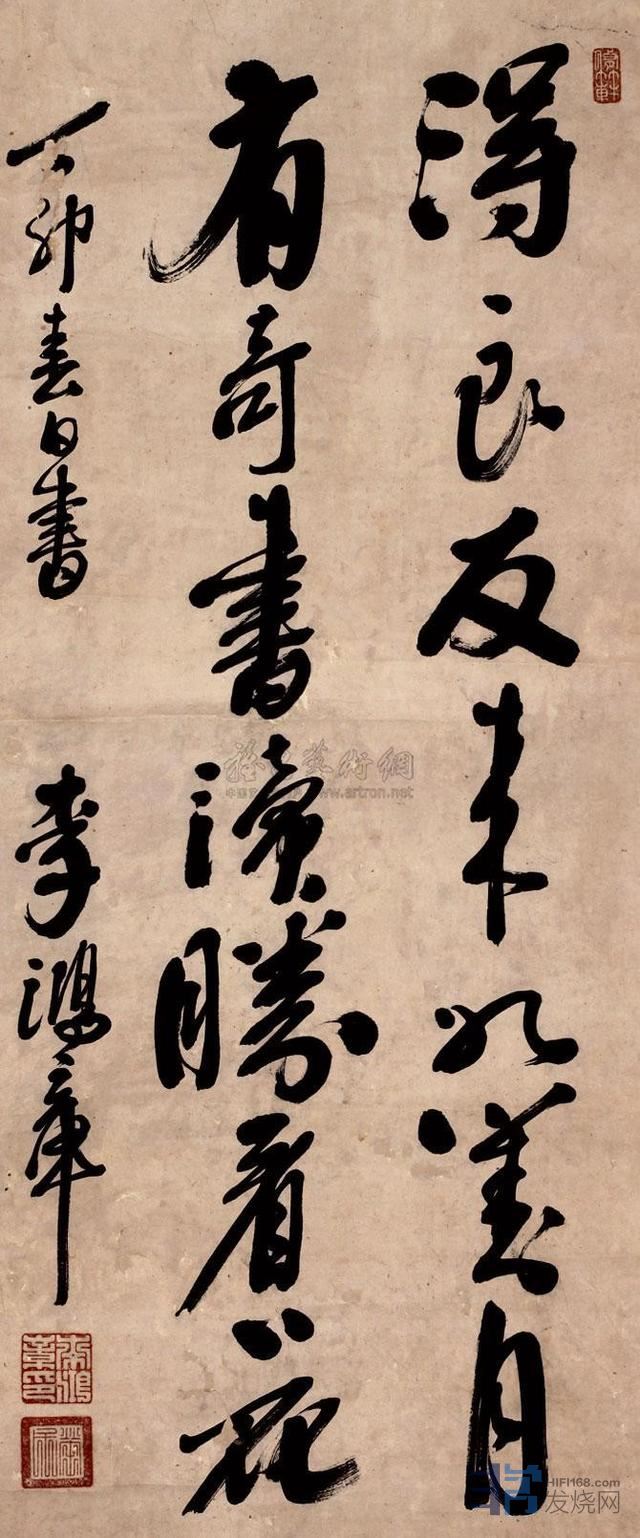 得良友来如對月
有奇書讀勝看花
丁卯春日書 李鴻章
李鴻章印
藝術網
www.artron.net
HIFI168.com
发烧网